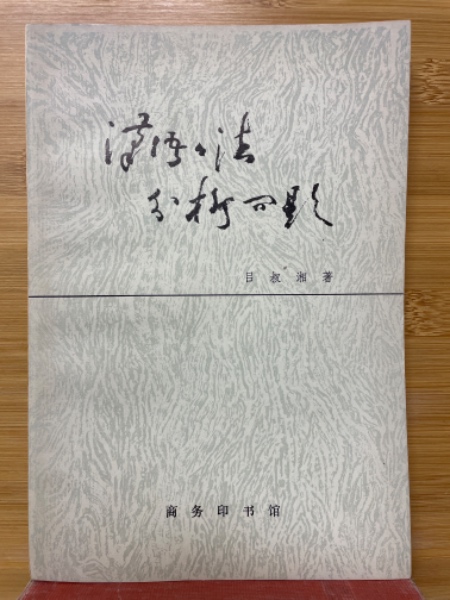 汉语语法
分析问题
吕叔湘著
商务印书馆